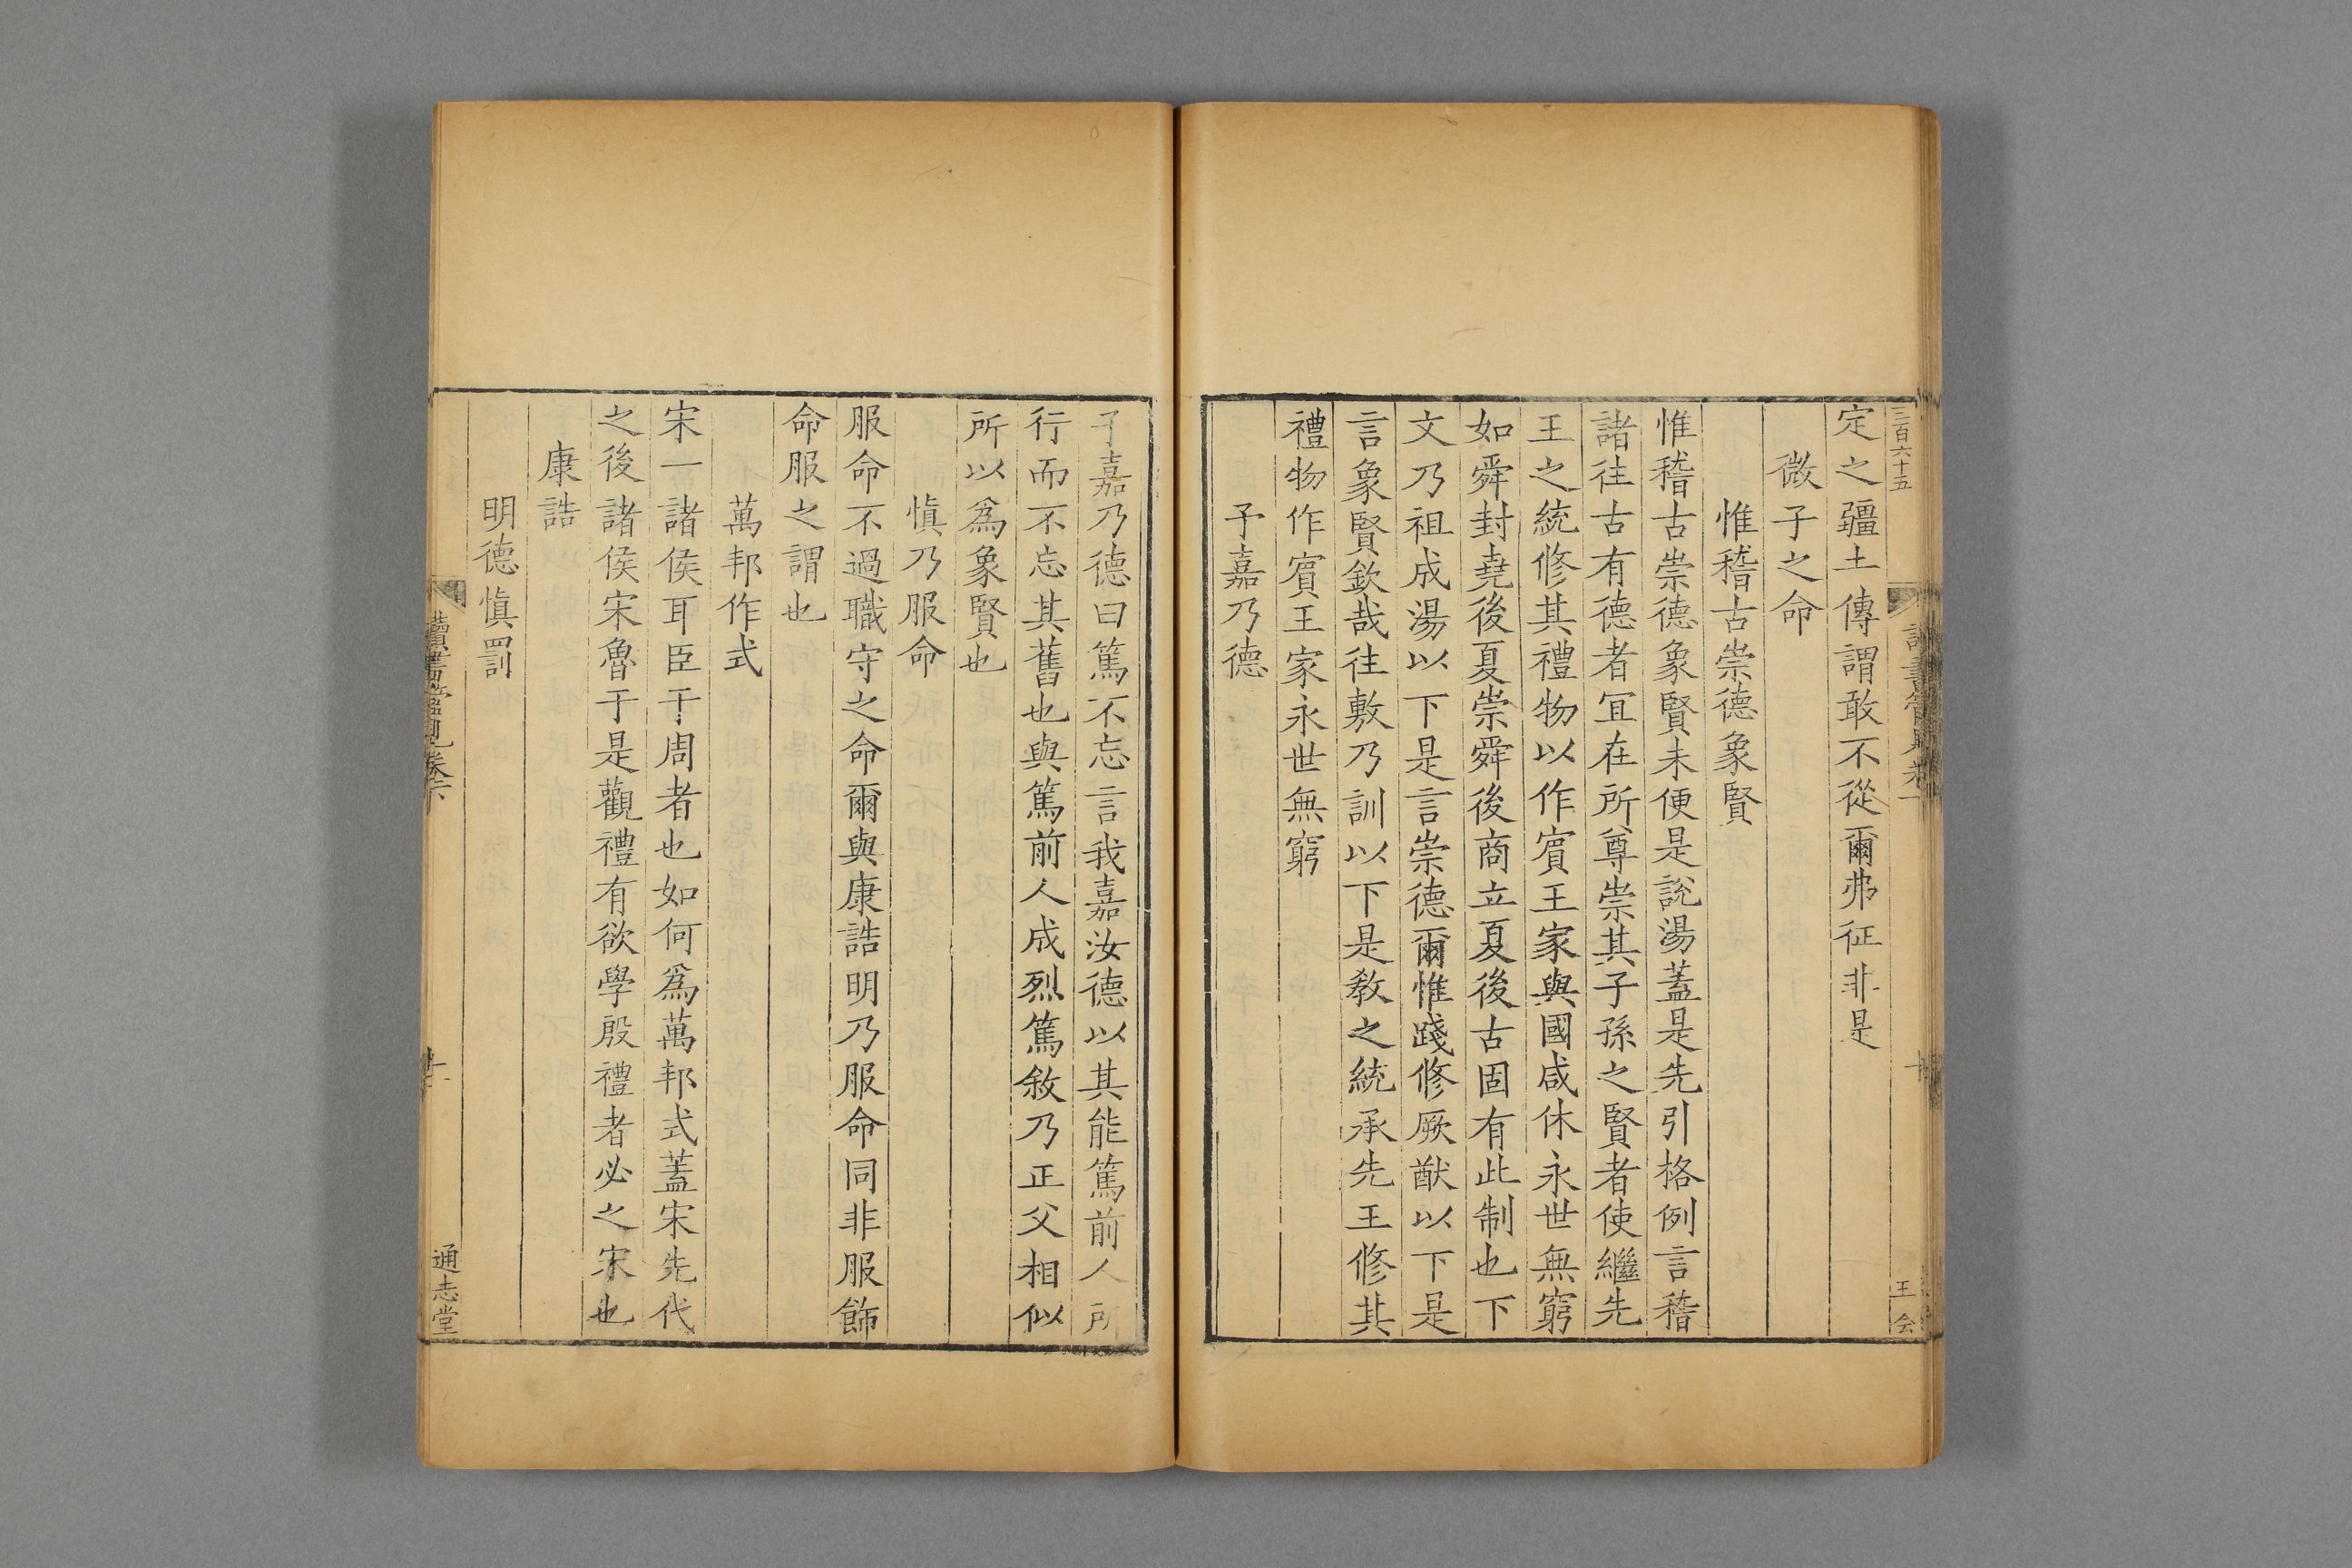 三百六十五
王会
定之疆土傳謂敢不從爾弗征非是
微子之命
惟稽古崇德象賢
惟稽古崇德象賢未便是說湯蓋是先引格例言稽
諸往古有德者宜在所尊崇其子孫之賢者使繼先
王之統修其禮物以作賓王家與國咸休永世無窮
如舜封堯後夏崇舜後商立夏後古固有此制也下
文乃祖成湯以下是言崇德爾惟踐修厥猷以下是
言象賢欽哉往敷乃訓以下是敎之統承先王修其
禮物作賓王家永世無窮
予嘉乃德
予嘉乃德曰篤不忘言我嘉汝德以其能篤前人所
行而不忘其舊也與篤前人成烈篤敘乃正父相似
所以爲象賢也
愼乃服命
服命不過職守之命爾與康誥明乃服命同非服飾
命服之謂也
萬邦作式
宋一諸侯耳臣于周者也如何爲萬邦式蓋宋先代
之後諸侯宋魯于是觀禮有欲學殷禮者必之宋也
康誥
明德愼罰
讀書管見卷下
通志堂